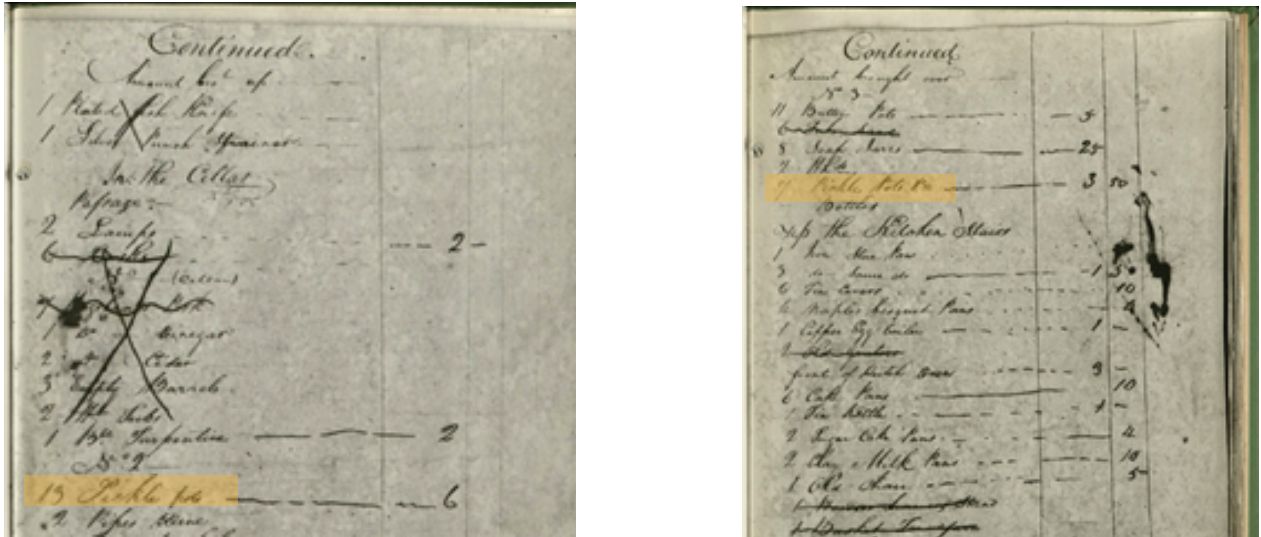 Continued.
Amount bro^t up
1 Plated fish Knife
1 Silver Punch Strainer
In the Cellar
Passage
2 Lamps 2 –
6 Casks
N^o (Cellar)
Pork
1 d^o Vinegar
2 d^o Cider
3 Empty Barrels
2 Tubs
1 Turpentine 2
N^o 2
13 Pickle pots 6
2 Pipes Wine
Continued
Amount brought over
N^o 3
11 Butter Pots 3
6
8 Soap Jarrs 25
7 Pickle Pots 3 50
Bottles
Up the Kitchen Stairs
1 Iron Stew Pan
3 do Sauce do 1 50
6 Tin Covers 10
Naples Bisquet Pans 4
1 Copper Egg boiler 1 –
2 Old
3 –
6 Cake Pans 10
1 Tin Kettle 1 –
2 Sugar Cake Pans 4
2 Clay Milk Pans 10
1 Old Chair 5